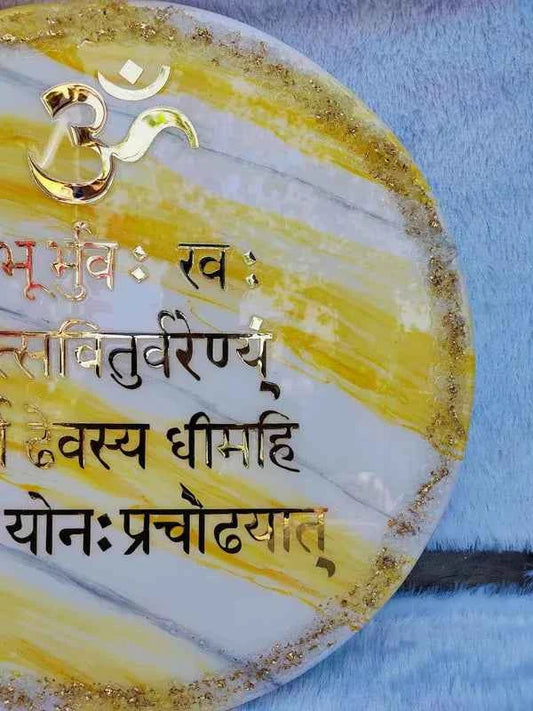 ॐ
भू र्भुवः रवः
त्सवितुर्वरैण्यं
ढेवस्य धीमहि
योनः प्रचोढयात्